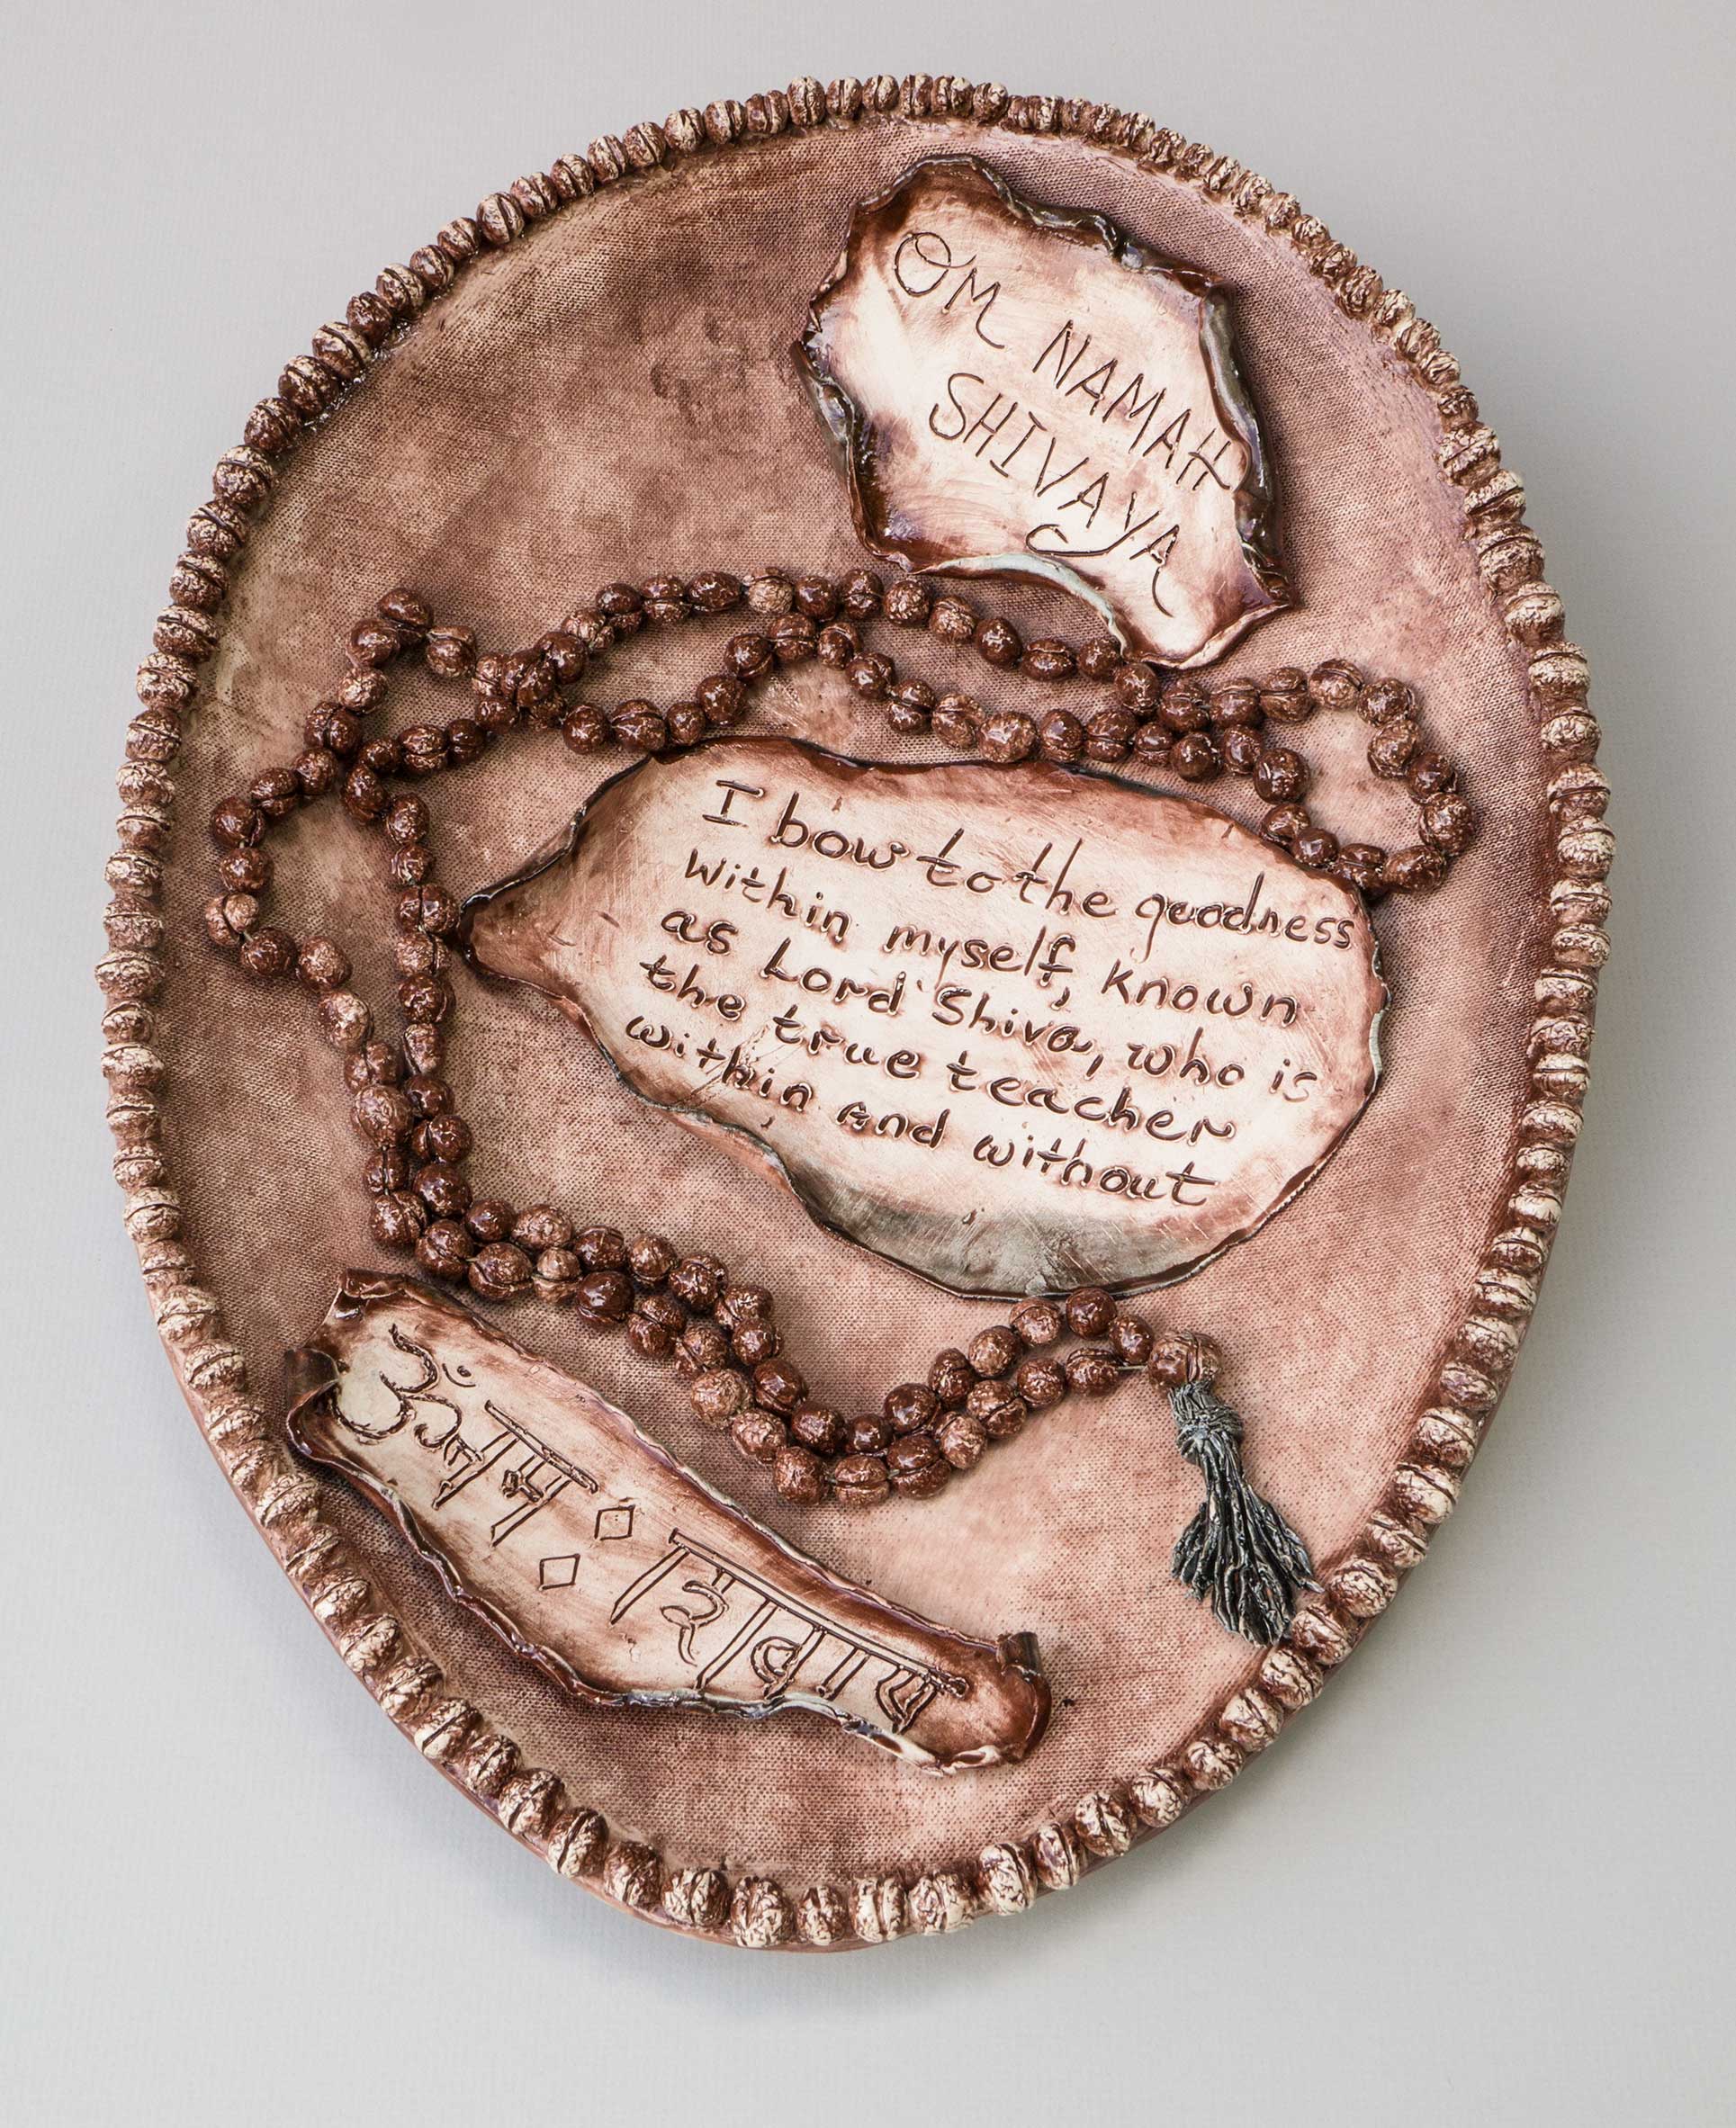 OM NAMAH
SHIVAYA
I bow to the goodness
within myself, known
as Lord Shiva, who is
the true teacher
within and without
ॐ नमः शिवाय